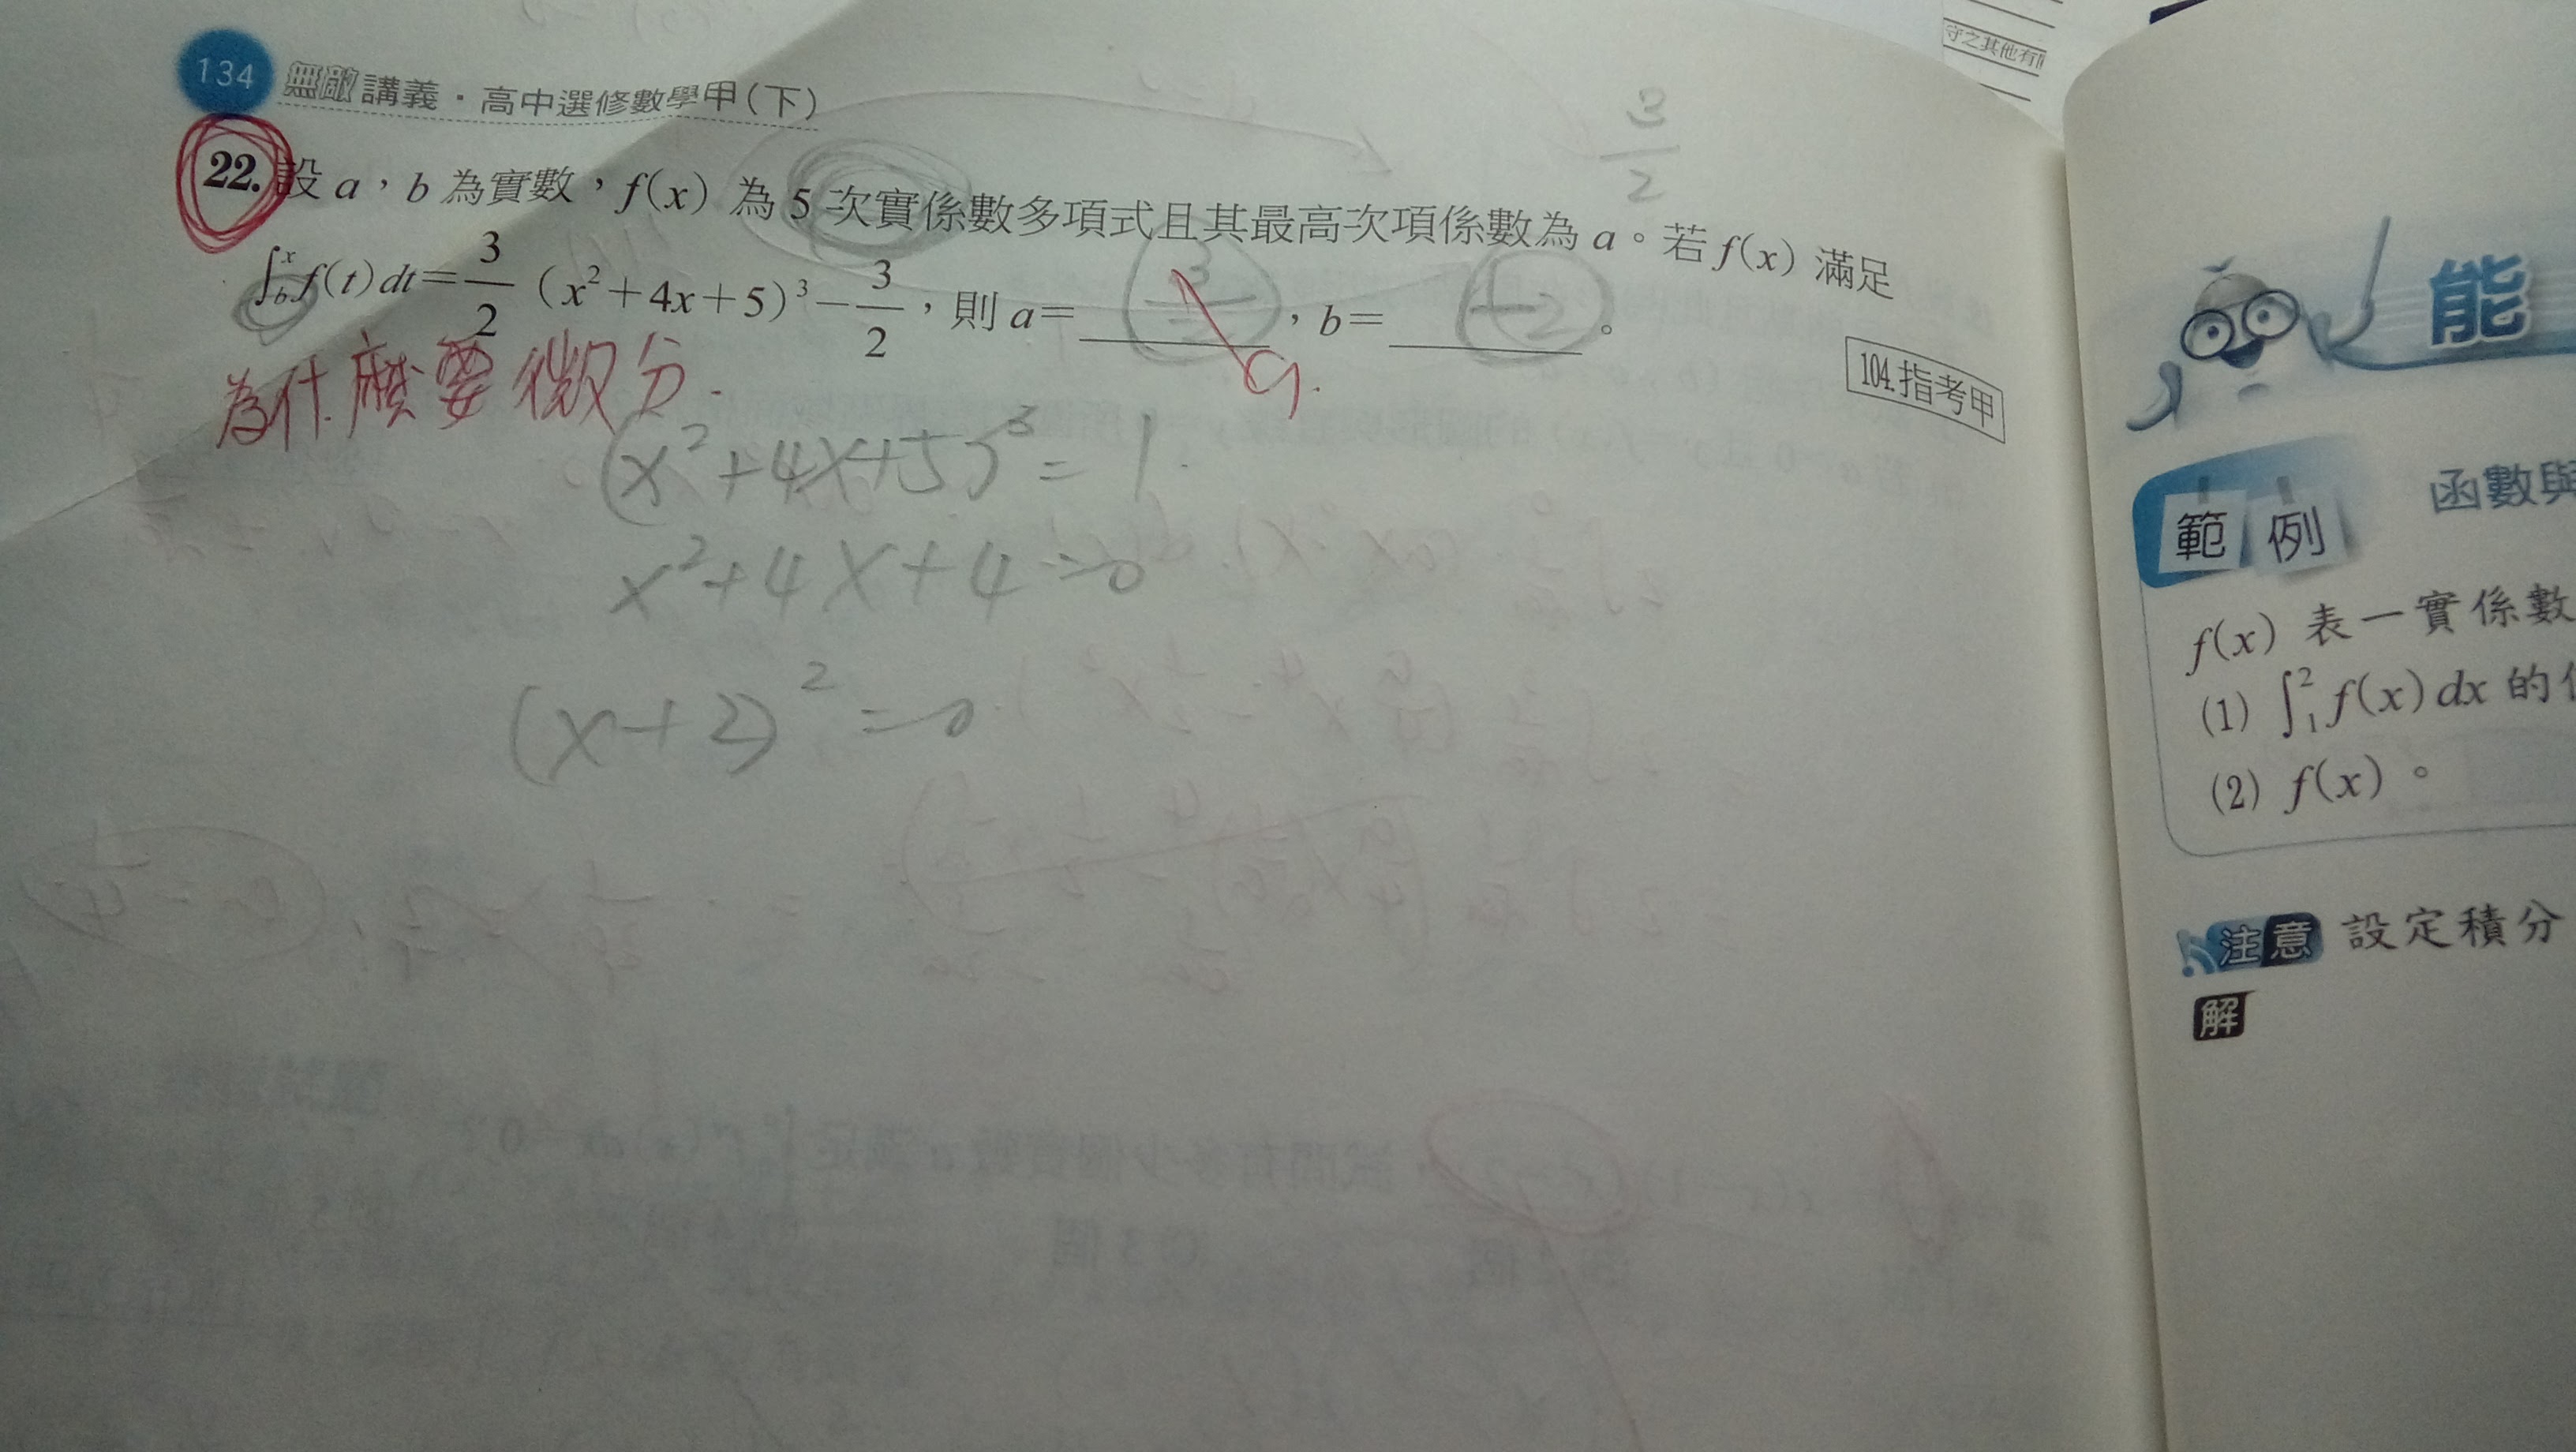 134 無敵講義・高中選修數學甲（下）
22. 設 a，b 為實數，f(x) 為 5 次實係數多項式且其最高次項係數為 a。若 f(x) 滿足
∫_b^x f(t)dt＝3/2（x²＋4x＋5）³－3/2，則 a＝ 3/2 9.，b＝ -2。
104.指考甲
3/2
為什麼要微分.
(x²+4x+5)³=1.
x²+4x+4=0
(x+2)²=0
守之其他有
能
範例 函數與
f(x) 表一實係數
(1) ∫_1^2 f(x)dx 的
(2) f(x)。
注意 設定積分
解